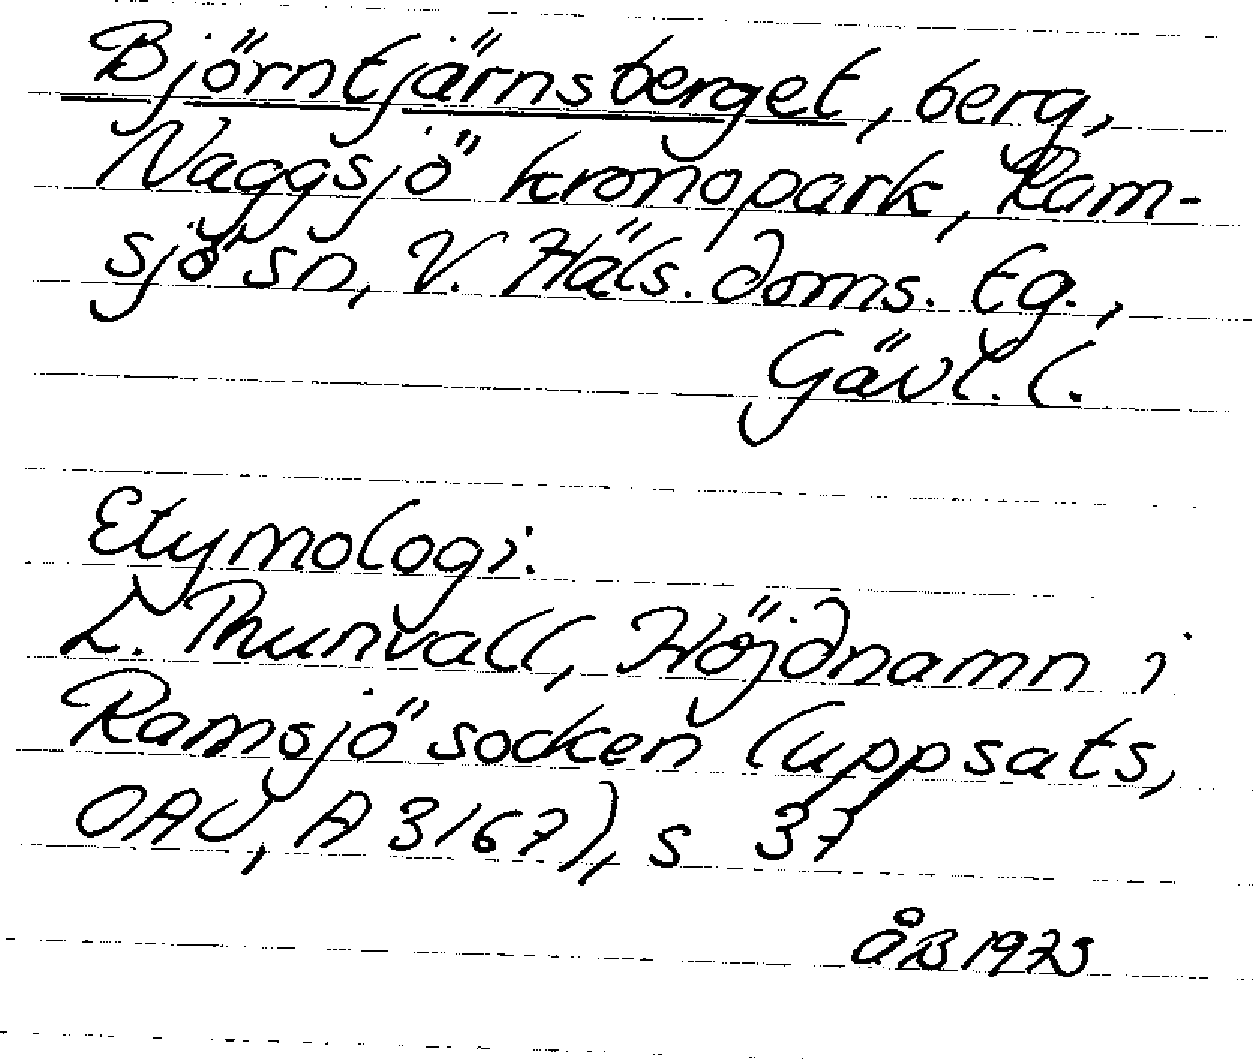 Björntjärnsberget, berg,
Naggsjö kronopark, Ram-
sjö sn, V. Häls. doms. tg.,
Gävl. l.
Etymologi:
L. Thunvall, Höjdnamn i
Ramsjö socken (uppsats,
OAU, A 3167), s 37